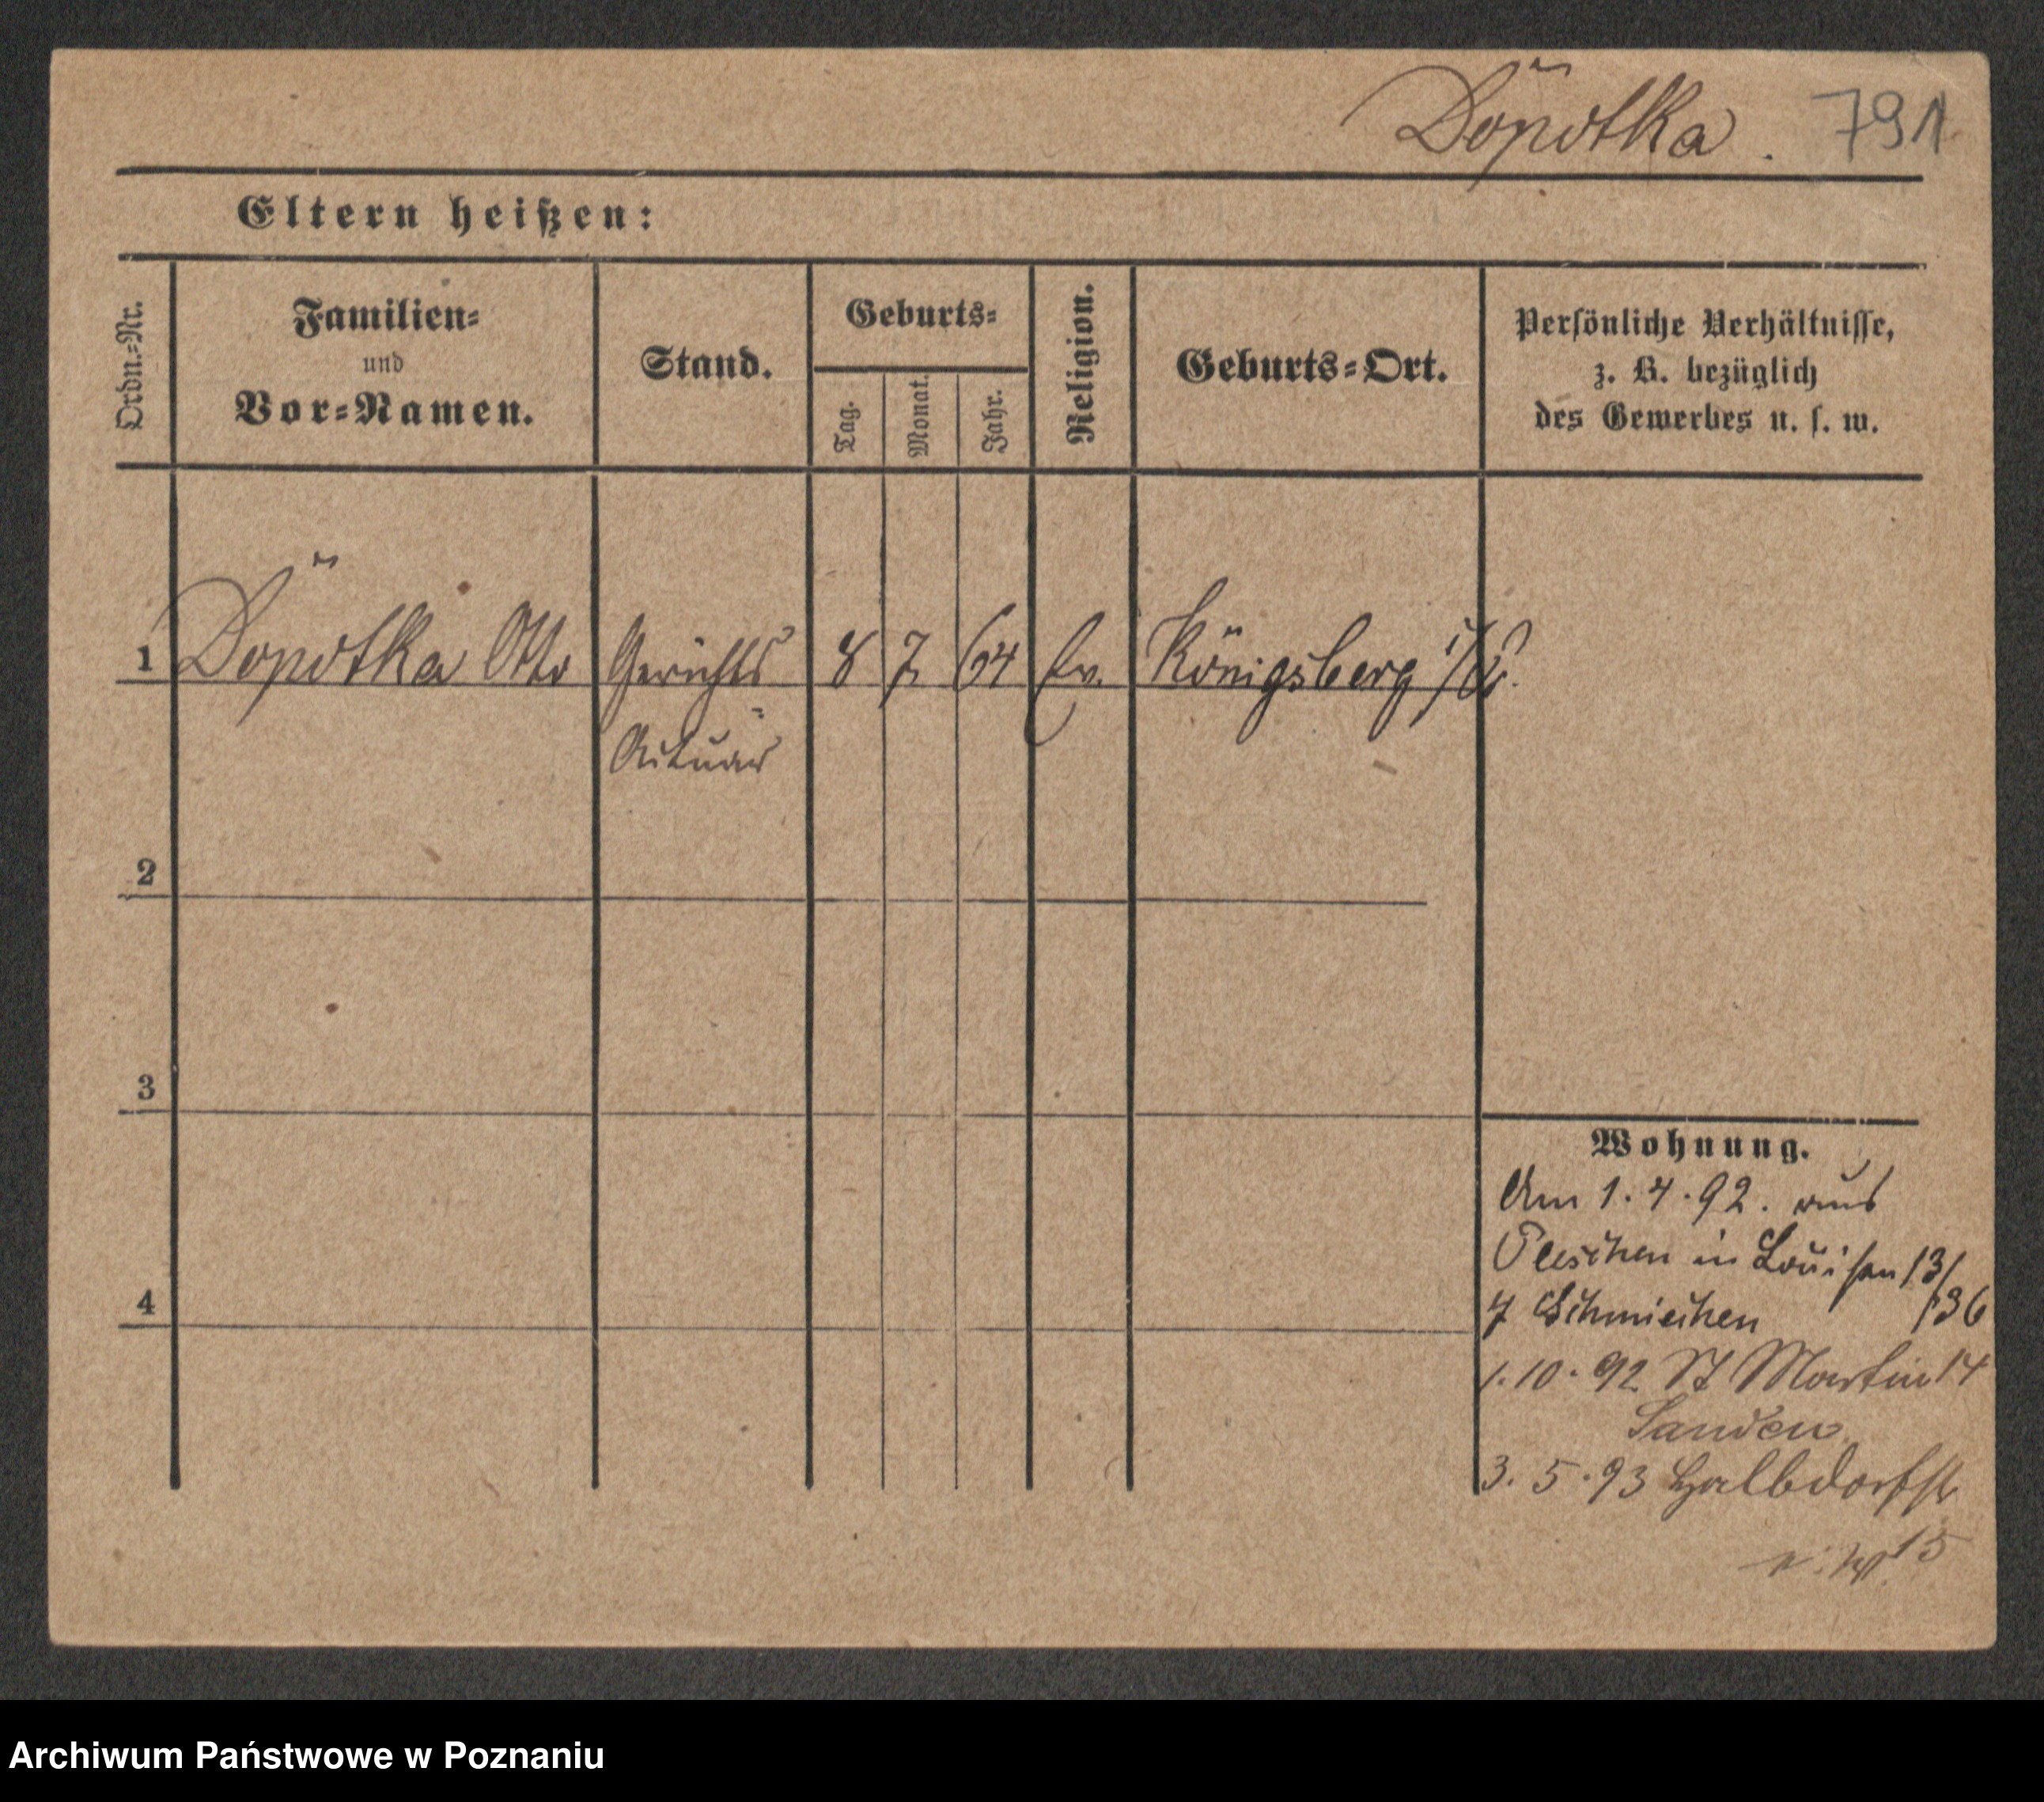 Döpotka. 791
Eltern heißen:
Ordn.-Nr.
Familien-
und
Vor-Namen.
Stand.
Geburts-
Tag.
Monat.
Jahr.
Religion.
Geburts-Ort.
Persönliche Verhältnisse,
z. B. bezüglich
des Gewerbes u. s. w.
1 Döpotka Otto Gerichts 8 7 64 Ev. Königsberg i/
Actuar
2
3
4
Wohnung.
Am 1.4.92. aus
Pleschen in Louisen 13/
Schmiechen /36
1.10.92 St Martin 14
Sanden
3.5.93 Halbdorfst
15
Archiwum Państwowe w Poznaniu